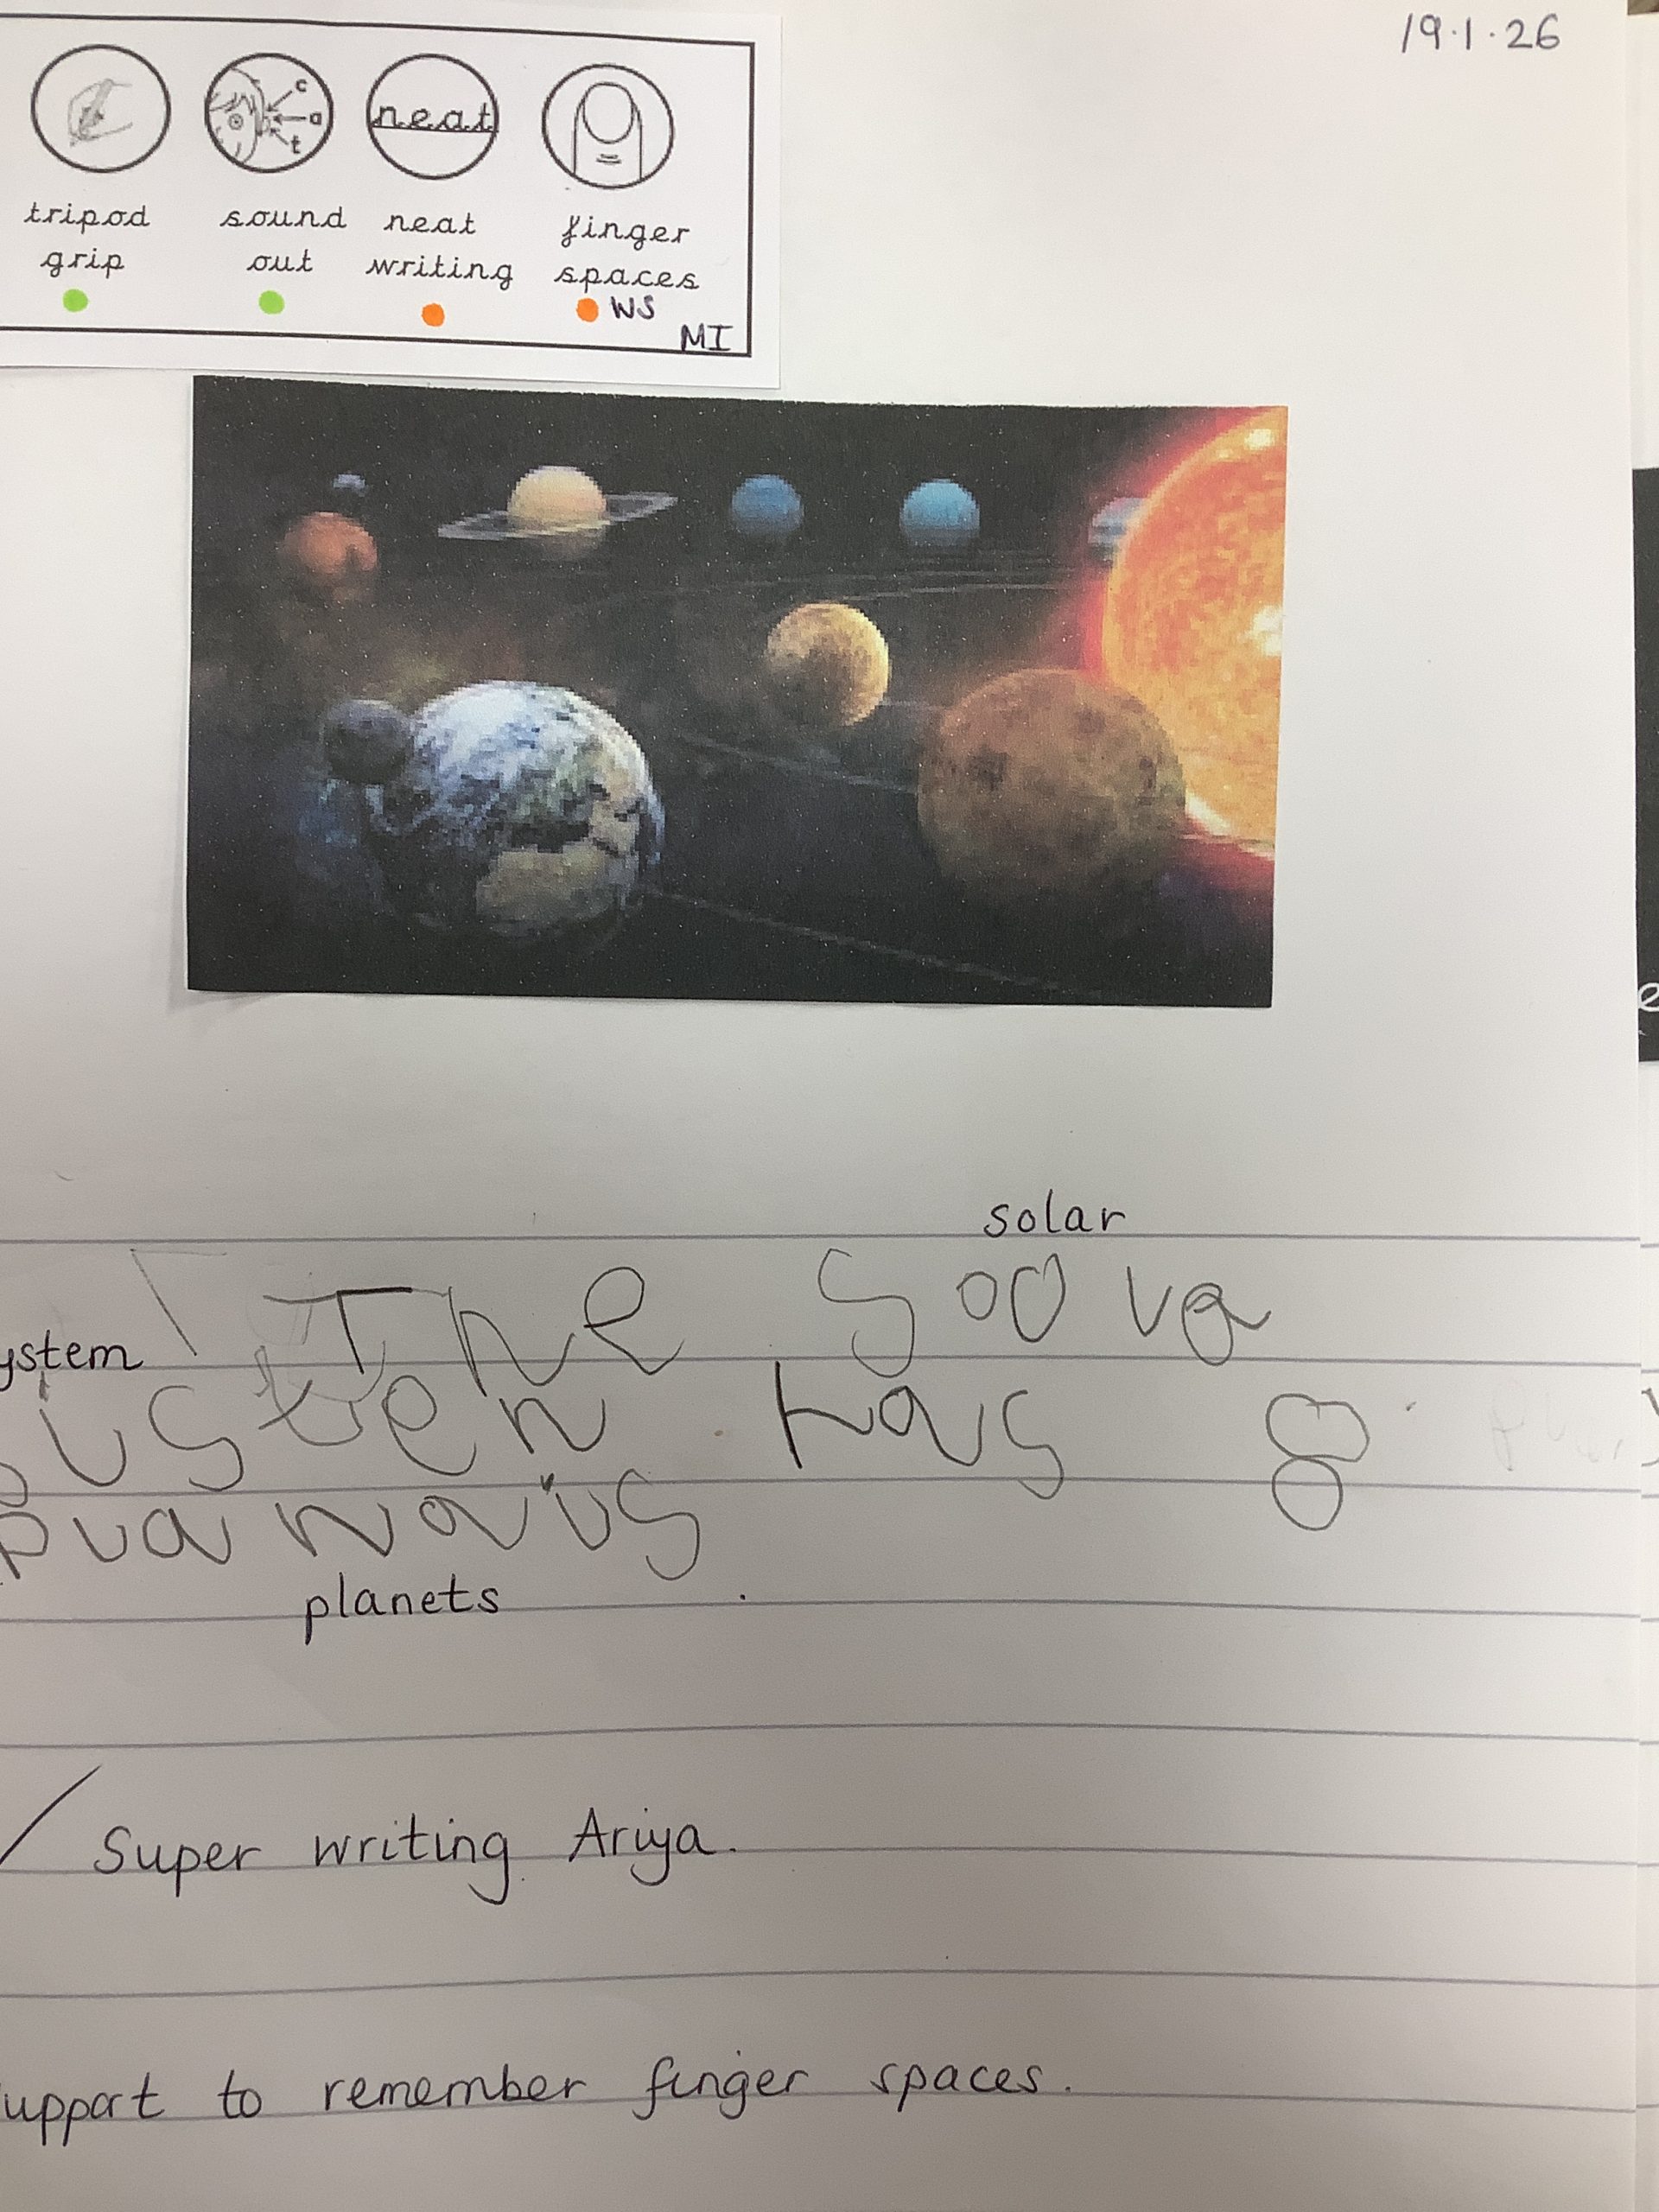 19.1.26
c
a
t
neat
tripod grip
sound out
neat writing
finger spaces
WS
MI
solar
The soova
ystem
sisten has 8
puanais
planets
.
Super writing Ariya.
upport to remember finger spaces.
e